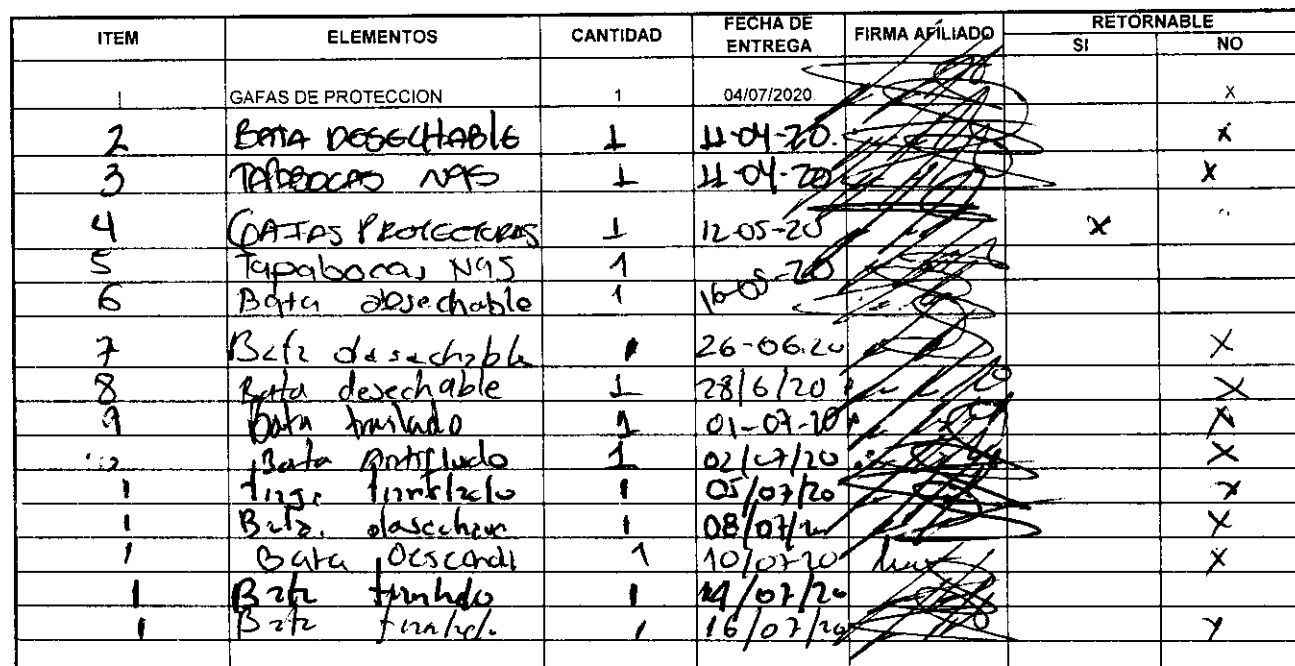 ITEM ELEMENTOS CANTIDAD FECHA DE ENTREGA FIRMA AFÍLIADO RETORNABLE SI NO
1 GAFAS DE PROTECCION 1 04/07/2020 X
2 BATA DESECHABLE 1 11-04-20. X
3 TAPABOCAS N95 1 11-04-20 X
4 GAFAS PROTECTORAS 1 12-05-20 X
5 Tapabocas N95 1
6 Bata desechable 1 16-05-20
7 Bata desechable 1 26-06-20 X
8 Bata desechable 1 28/6/20 X
9 Bata traslado 1 01-07-20 X
Bata Antifludo 1 02/07/20 X
1 1 05/07/20 X
1 Bata. 1 08/07/20 X
1 Bata 1 10/07-20 X
1 Bata 1 14/07/20
1 Bata 1 16/07/20 X